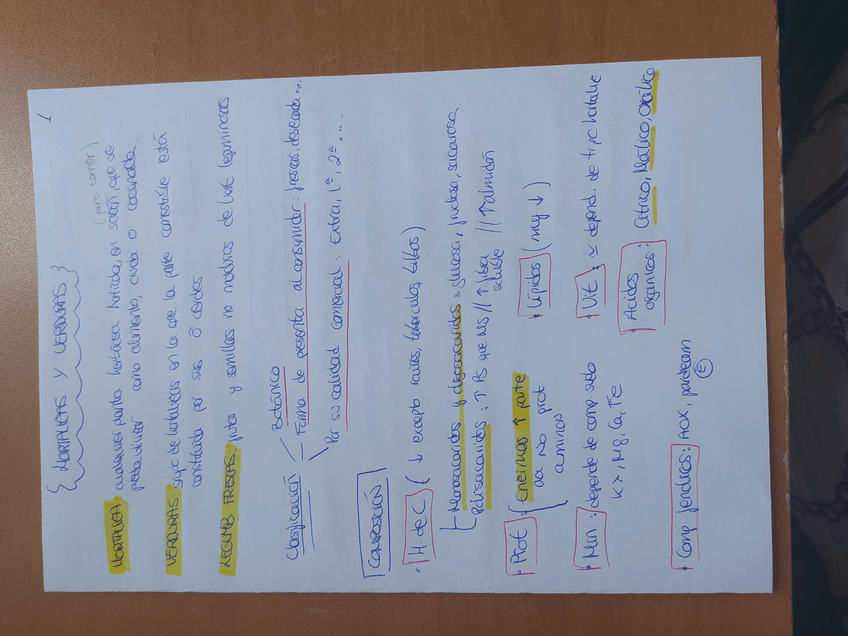 1
{HORTALIZAS Y VERDURAS}
(para comer)
HORTALIZA: cualquier planta herbácea hortícola, en sazón, que se
puede utilizar como alimento, cruda o cocinada.
VERDURAS: grupo de hortalizas en la que la parte comestible está
constituida por sus ó verdes
LEGUMB FRESCAS: frutos y semillas no maduros de hort leguminosas
Clasificación
Botánico
Forma de presenta. al consumidor: frescas, desecada...
Por su calidad comercial: Extra, 1ª, 2ª ...
COMPOSICIÓN
· H. de C (↓ excepto raíces, tubérculos, bulbos)
Monosacáridos y disacáridos = glucosa, fructosa, sacarosa.
Polisacáridos: ↑ PS que HS // ↑ fibra soluble // ↑ almidón
· Prot: { enzimas ↑ parte
da No prot
aminos
· Lípidos (muy ↓)
· Min: depende de comp suelo
K >, Mg, Ca, Fe
· Vit: ≃ depend. de tipo hortaliz.
· Ácidos orgánicos: Cítrico, Málico, oxálico
· Comp fenólicos: AOX, pardeam
(E)